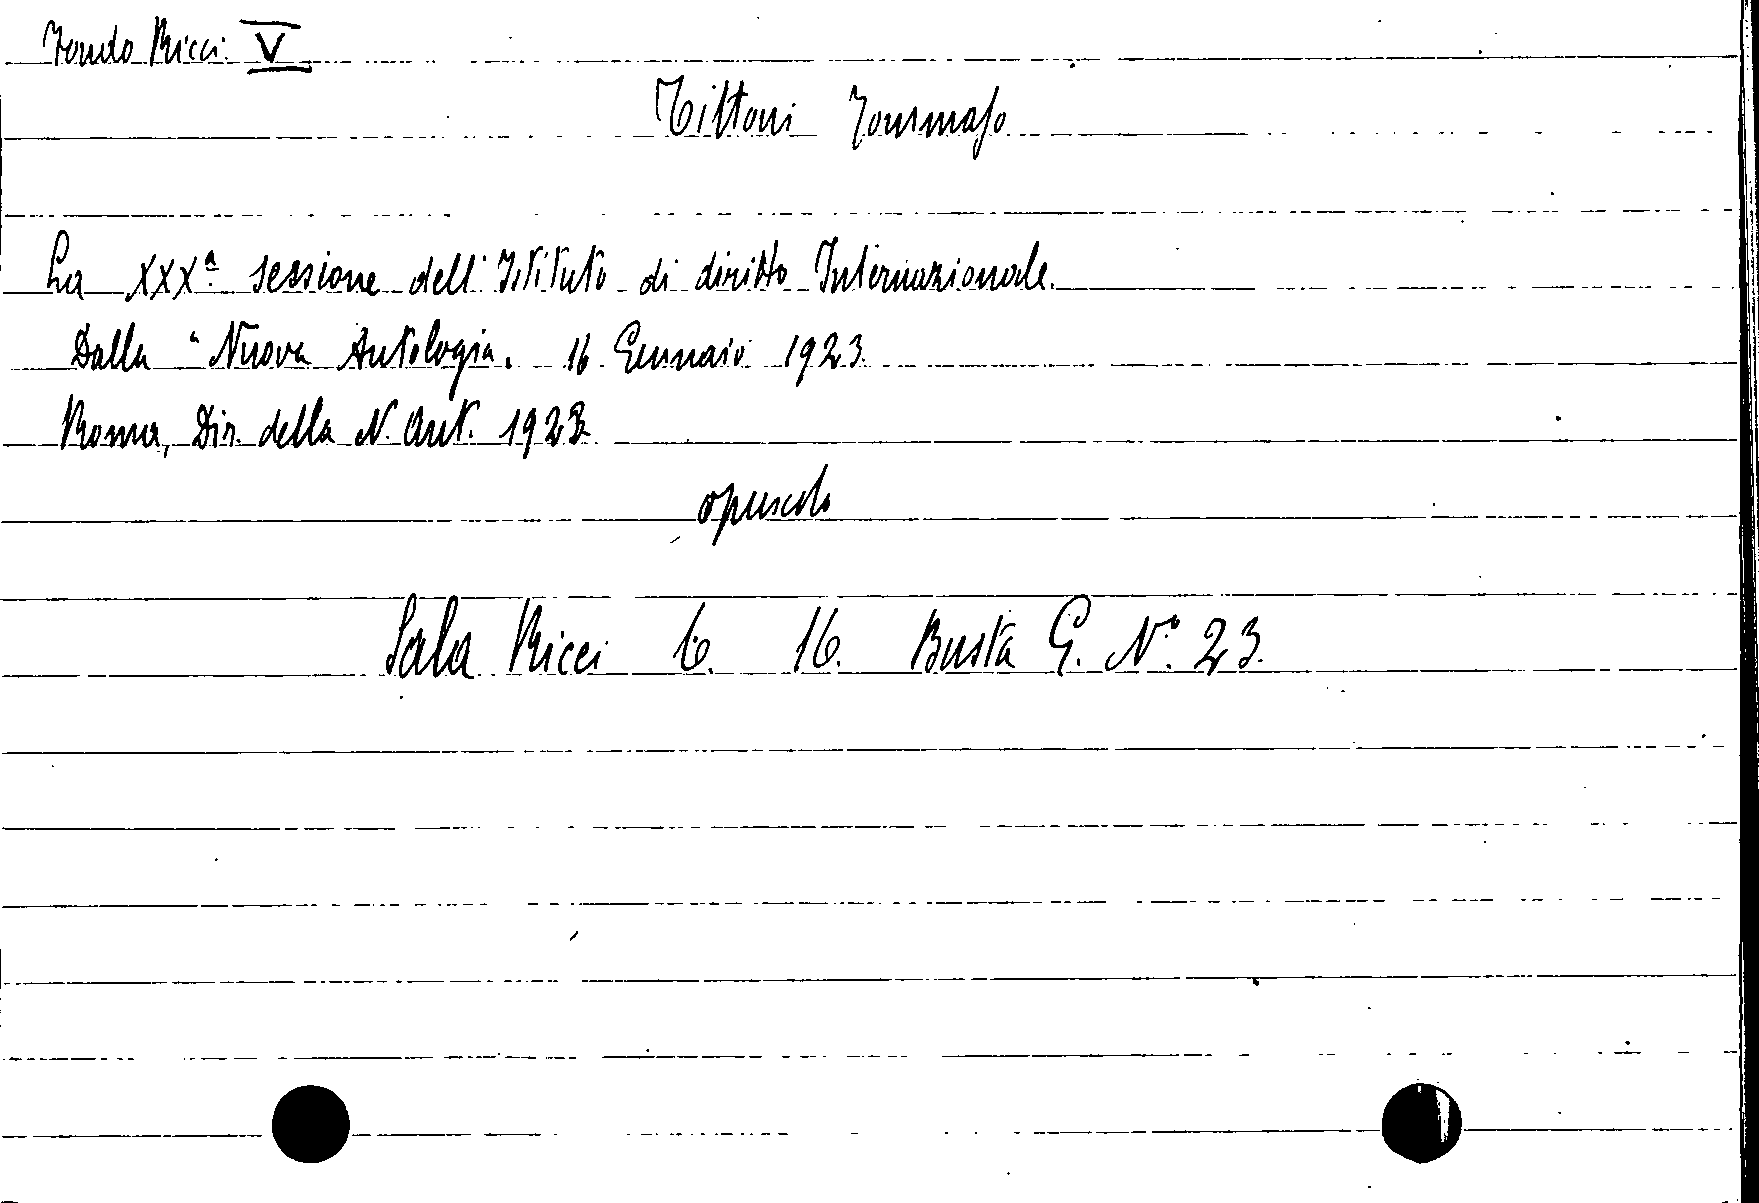 Fondo Ricci V
Tittoni Tommaso
La XXXª sessione dell'Istituto di diritto Internazionale.
Dalla "Nuova Antologia. 16 Gennaio 1923.
Roma, Dir. della N. Ant. 1923.
opuscolo
Sala Ricci 16. Busta G. N.° 23.